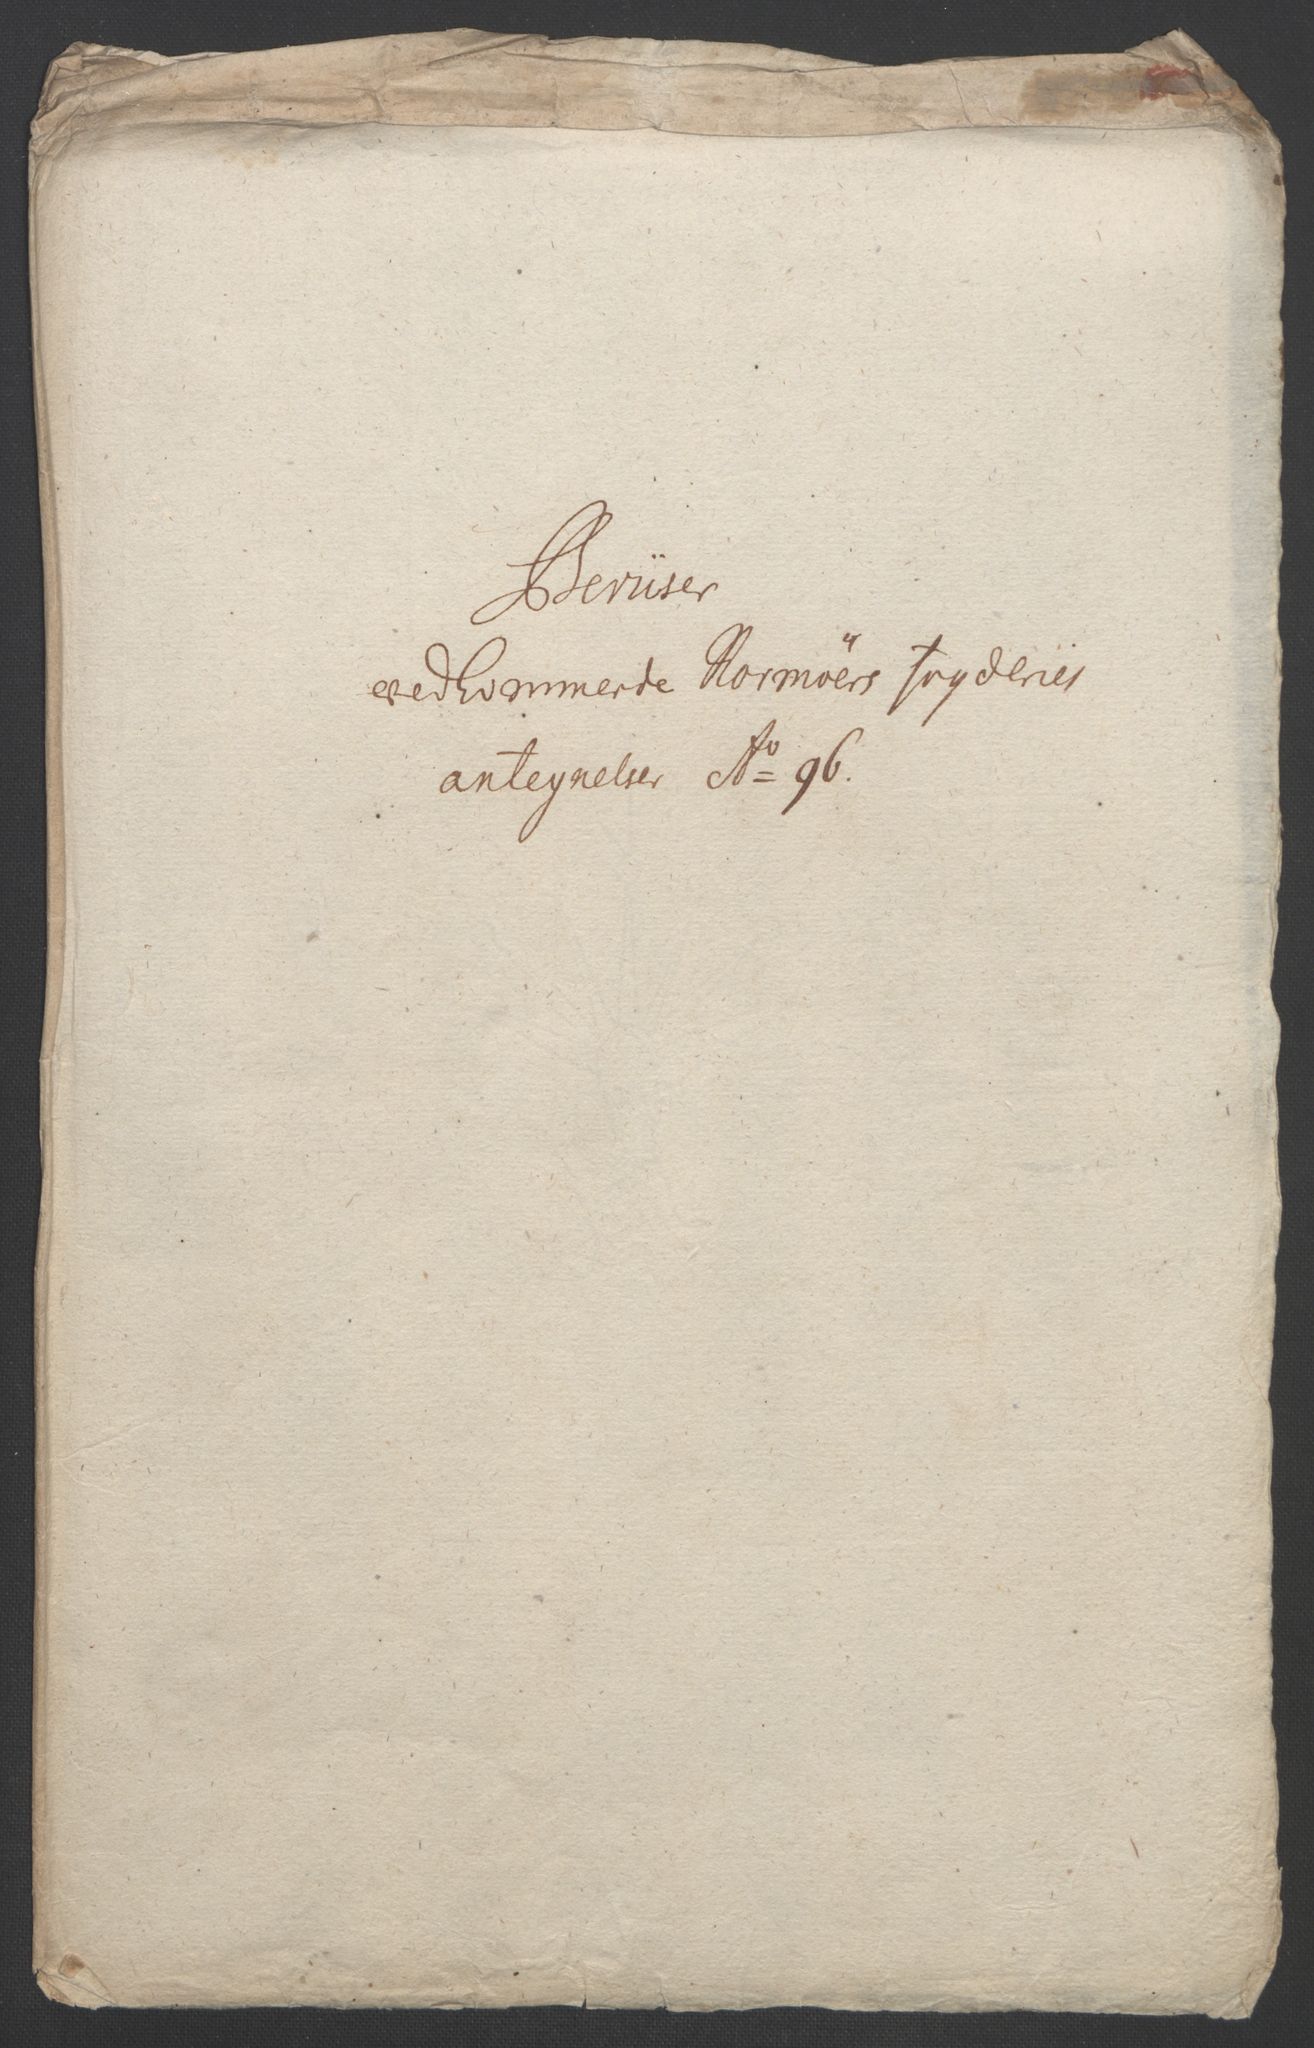 Beviiser
vedkommende Normöers fogderies
antegnelser Ao 96.